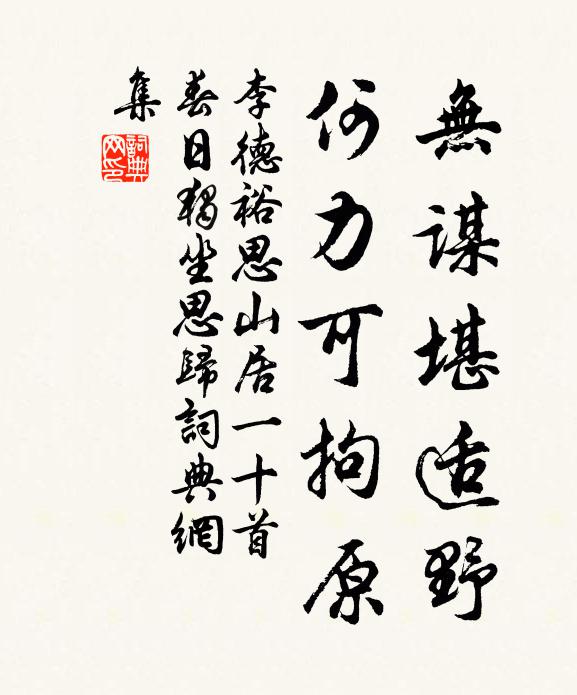 無謀堪适野
何力可拘原
李德裕思山居一十首
春日獨坐思歸詞典網
集
詞典網印